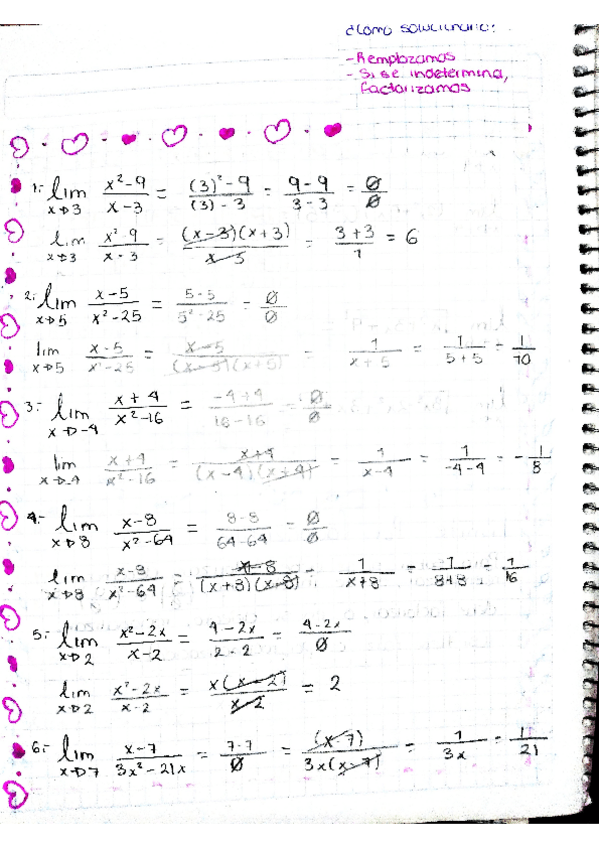 ¿Como solucionarlo?
-Remplazamos
- Si se indetermina,
factorizamos
1.- lim x→3 (x²-9)/(x-3) = ((3)²-9)/((3)-3) = (9-9)/(3-3) = 0/0
lim x→3 (x²-9)/(x-3) = ((x-3)(x+3))/(x-3) = (3+3)/1 = 6
2.- lim x→5 (x-5)/(x²-25) = (5-5)/(5²-25) = 0/0
lim x→5 (x-5)/(x²-25) = (x-5)/((x-5)(x+5)) = 1/(x+5) = 1/(5+5) = 1/10
3.- lim x→-4 (x+4)/(x²-16) = (-4+4)/(16-16) = 0/0
lim x→-4 (x+4)/(x²-16) = (x+4)/((x-4)(x+4)) = 1/(x-4) = 1/(-4-4) = -1/8
4.- lim x→8 (x-8)/(x²-64) = (8-8)/(64-64) = 0/0
lim x→8 (x-8)/(x²-64) = (x-8)/((x+8)(x-8)) = 1/(x+8) = 1/(8+8) = 1/16
5.- lim x→2 (x²-2x)/(x-2) = (4-2x)/(2-2) = (4-2x)/0
lim x→2 (x²-2x)/(x-2) = (x(x-2))/(x-2) = 2
6.- lim x→7 (x-7)/(3x²-21x) = (7-7)/0 = (x-7)/(3x(x-7)) = 1/(3x) = 1/21